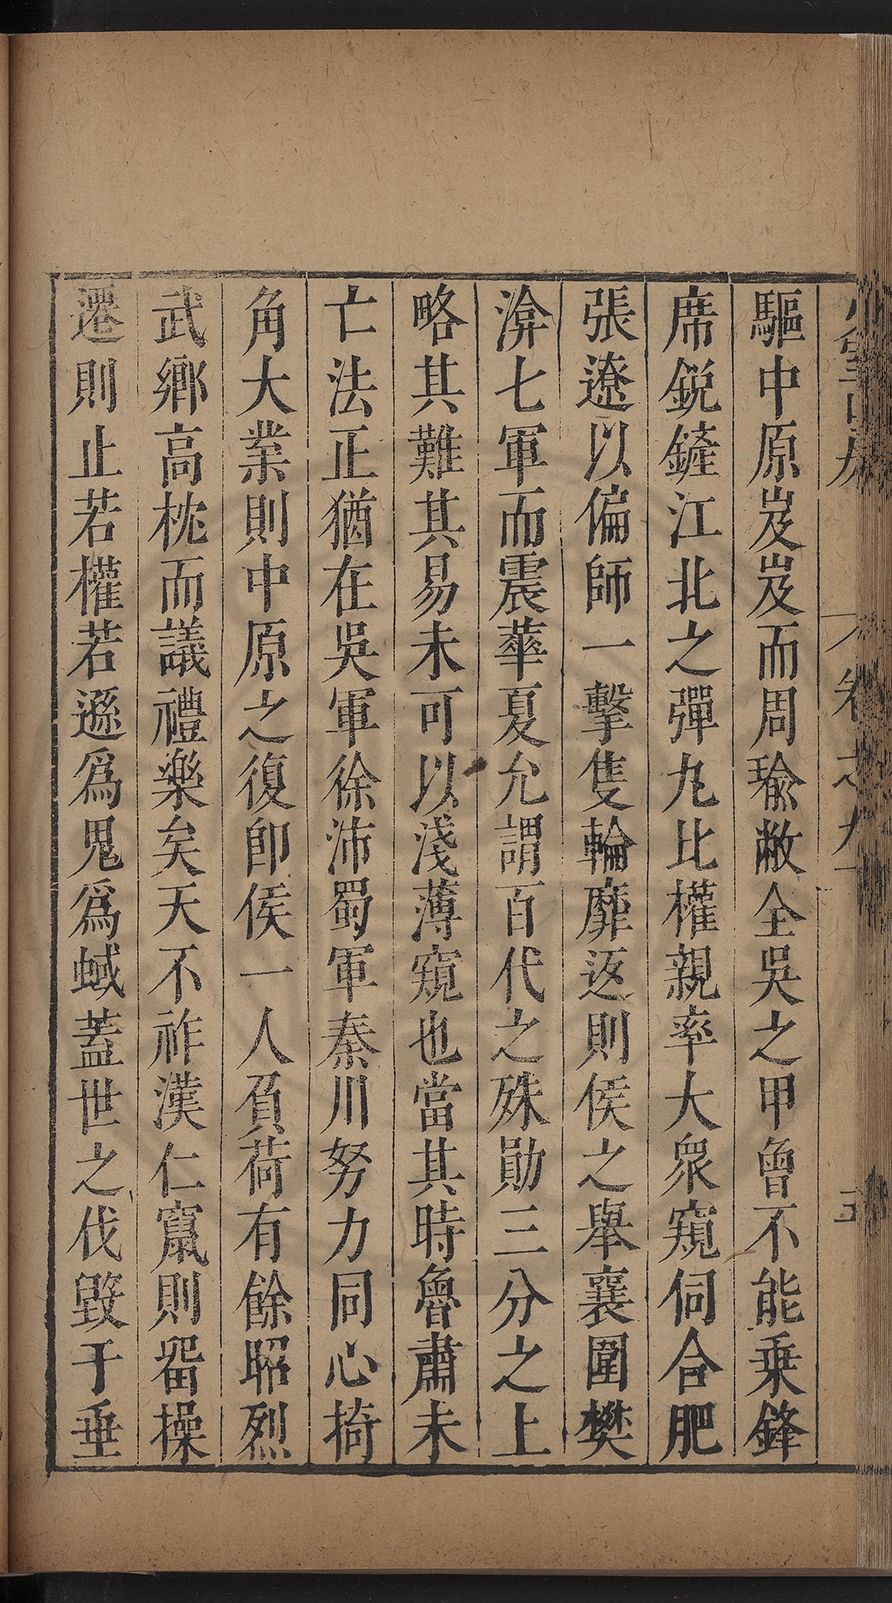 卷之九
五
驅中原岌岌而周瑜敝全吳之甲曾不能乗鋒
席銳鏟江北之彈丸比權親率大衆窺伺合肥
張遼以偏師一擊隻輪靡返則侯之舉襄圍樊
渰七軍而震華夏允謂百代之殊勛三分之上
略其難其易未可以淺薄窺也當其時魯肅未
亡法正猶在吳軍徐沛蜀軍秦川努力同心掎
角大業則中原之復卽侯一人負荷有餘昭烈
武鄉高枕而議禮樂矣天不祚漢仁竄則畱操
遷則止若權若遜爲鬼爲蜮蓋世之伐毀于垂